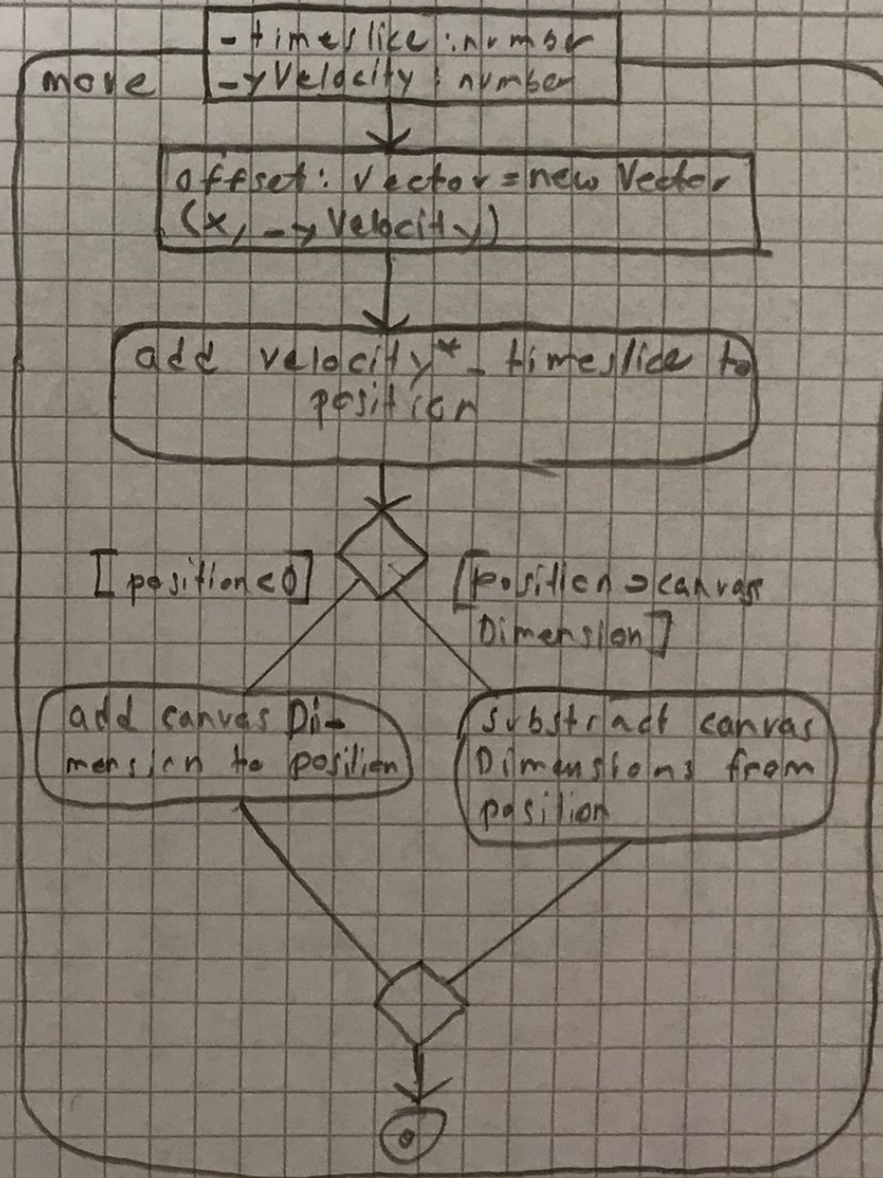 move
_timeslice : number
_yVelocity : number
offset: Vector = new Vector
(x, _yVelocity)
add velocity* _timeslice to
position
[position<0]
[position>canvas
Dimension]
add canvas Di-
mension to position
substract canvas
Dimensions from
position